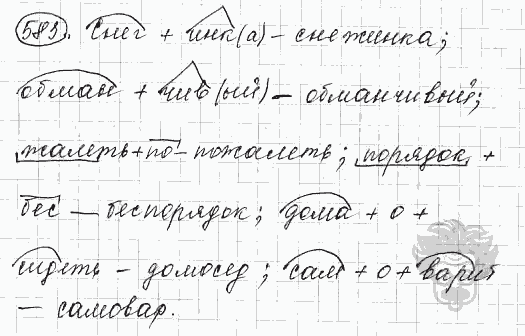 583. Снег + инк(а) – снежинка;
обман + чив(ый) – обманчивый;
жалеть + по – пожалеть; порядок +
бес – беспорядок; дома + о +
сидеть – домосед; сам + о + варит
– самовар.